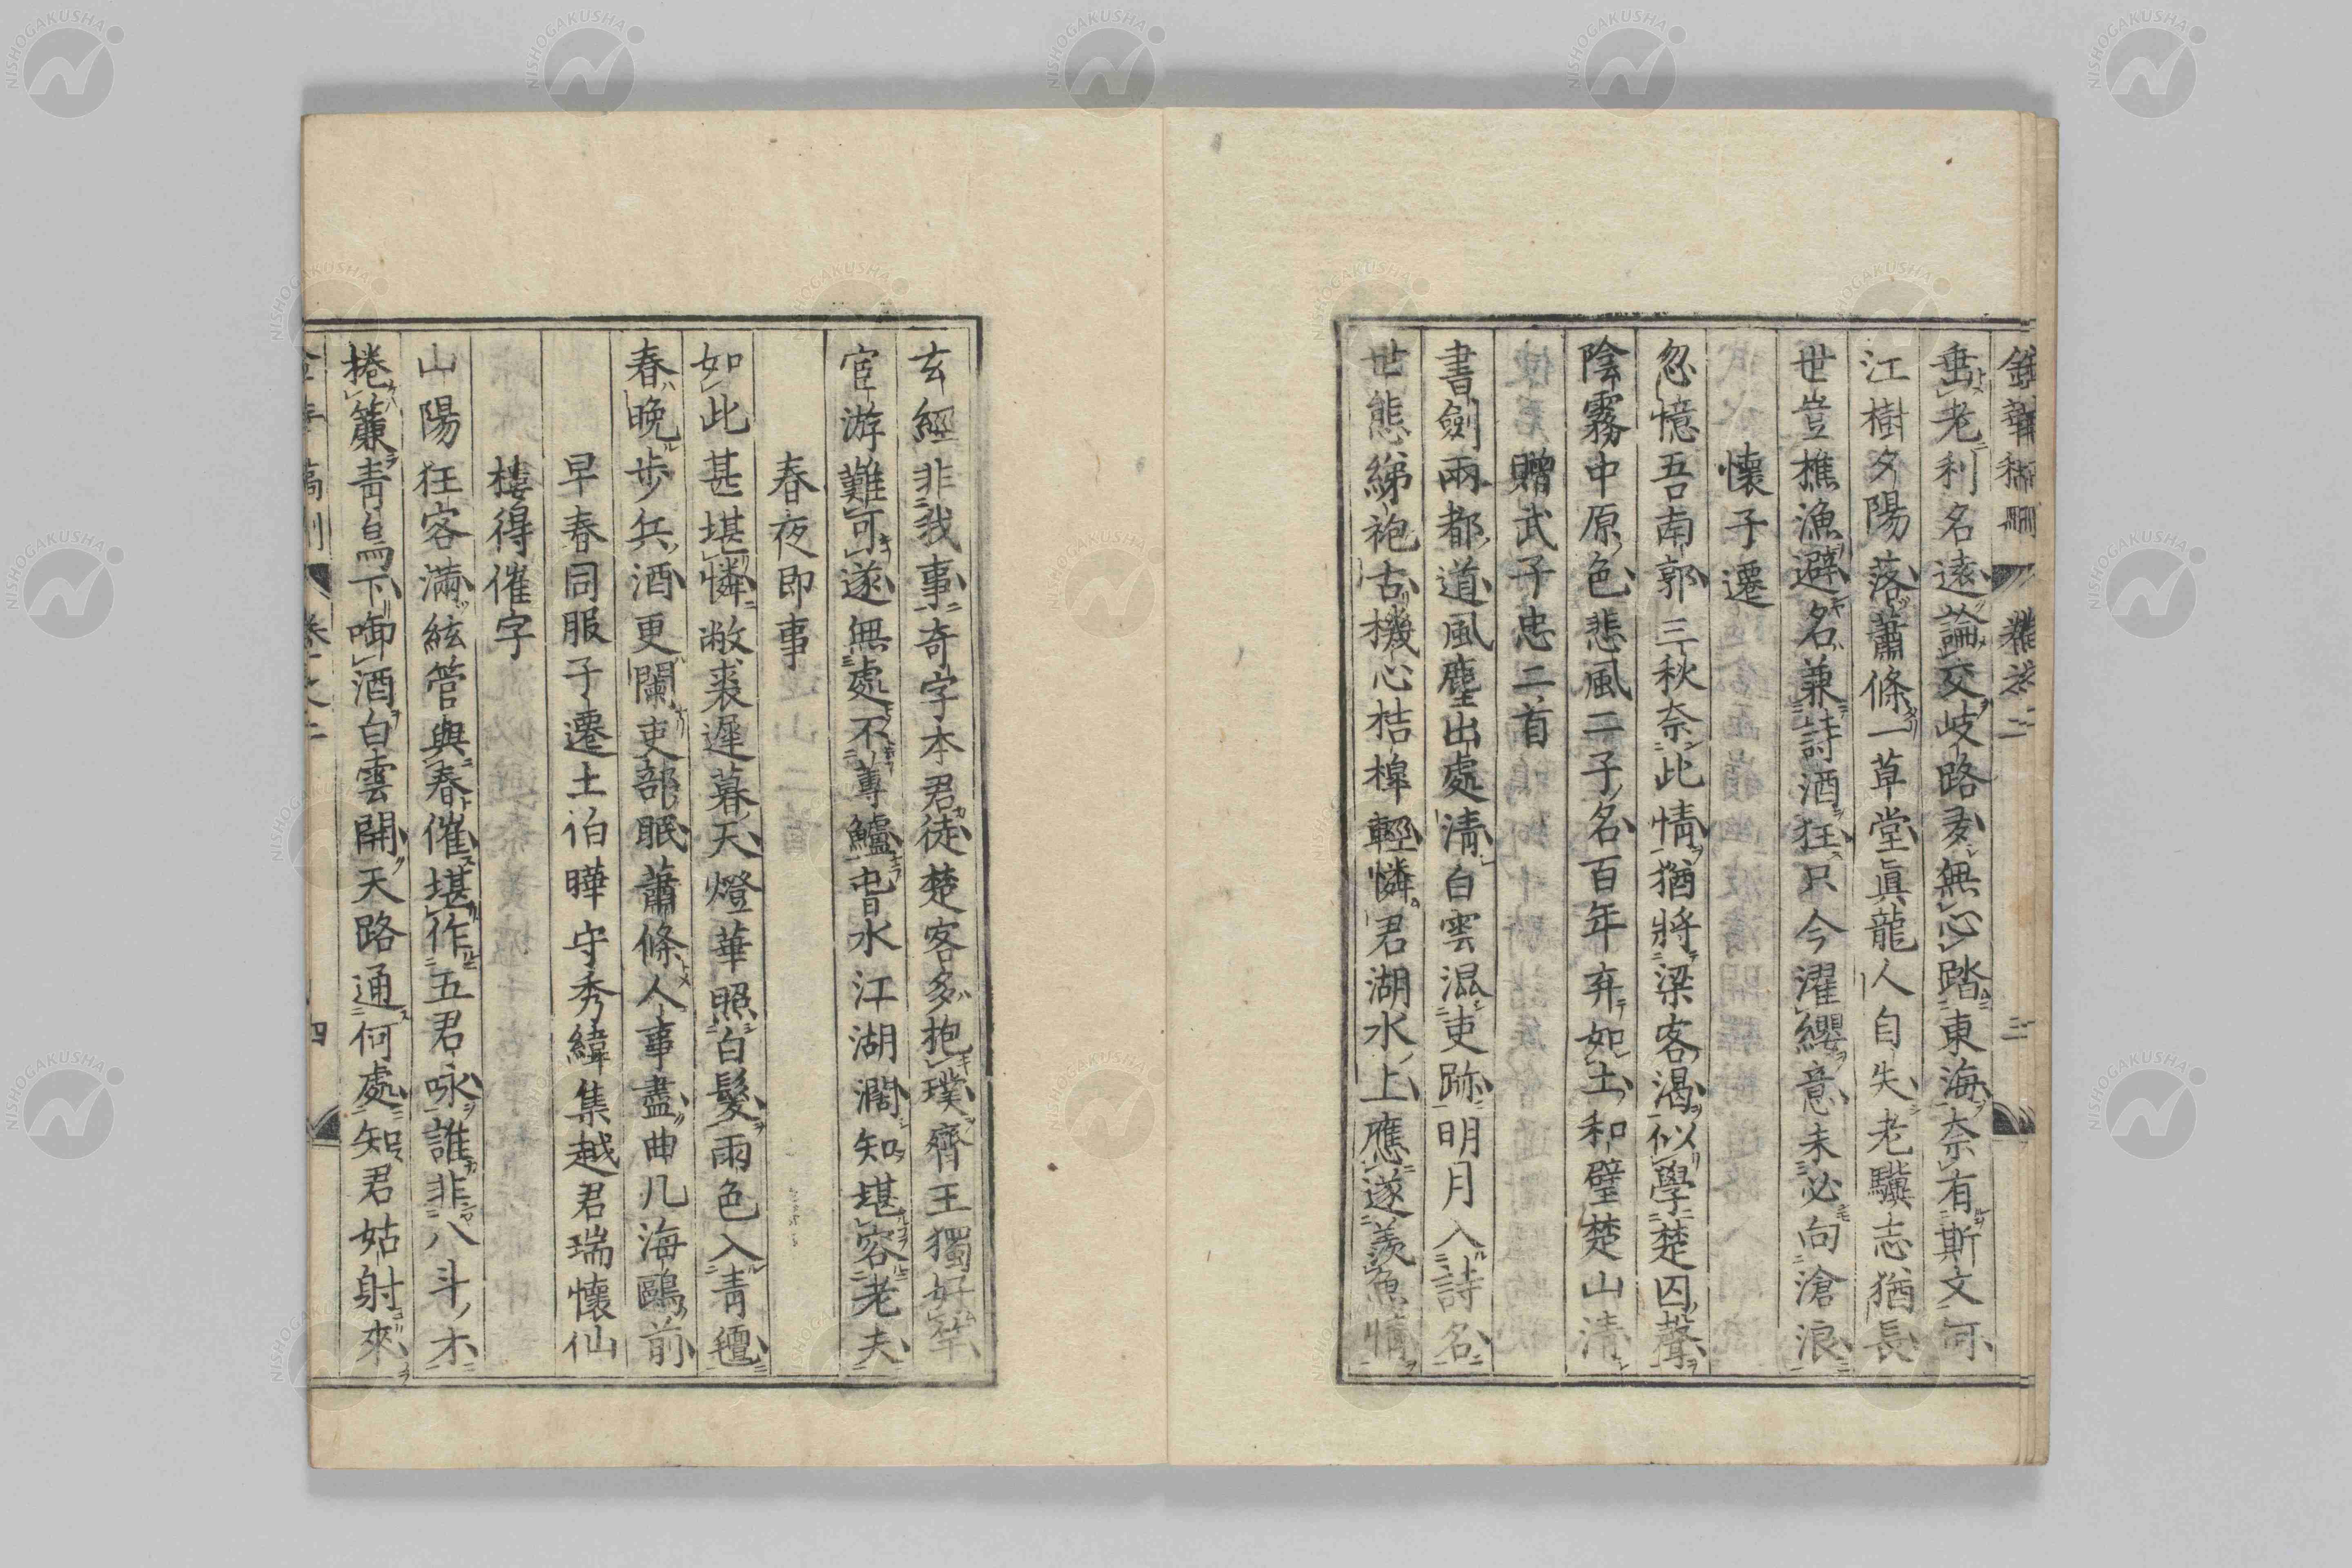 垂老利名遠論交岐路多無心踏東海奈有斯文何
江樹夕陽落蕭條一草堂眞龍人自失老驥志猶長
世豈樵漁避名兼詩酒狂只今濯纓意未必向滄浪
懷子遷
忽憶吾南郭三秋奈此情猶將梁客渴似學楚囚聲
陰霧中原色悲風二子名百年弃如土和璧楚山清
贈武子忠二首
書劍兩都道風塵出處清白雲混吏跡明月入詩名
世態綈袍古機心桔槹輕憐君湖水上應遂羨魚情
玄經非我事奇字本君徒楚客多抱璞齊王獨好竽
宦游難可遂無處不蓴鱸屯昔水江湖濶知堪容老夫
春夜即事
如此甚堪憐敝裘遲暮天燈華照白髮雨色入青氊
春晚步兵酒更闌吏部眠蕭條人事盡曲几海鷗前
早春同服子遷土伯曄守秀緯集越君瑞懷仙
樓得催字
山陽狂客滿絃管與春催堪作五君咏誰非八斗才
捲簾青鳥下啣酒白雲開天路通何處知君姑射來
NISHOGAKUSHA